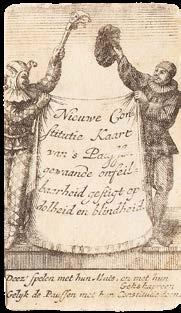 Nieuwe Con
stitutie Kaart
van's Pauzen
gewaande onfeil=
baarheid gestigt op
delheid en blindheid
Deez' spelen met hun Muts, en met hun
Gekskaproen
Gelyk de Paussen met hun Constitutie doen